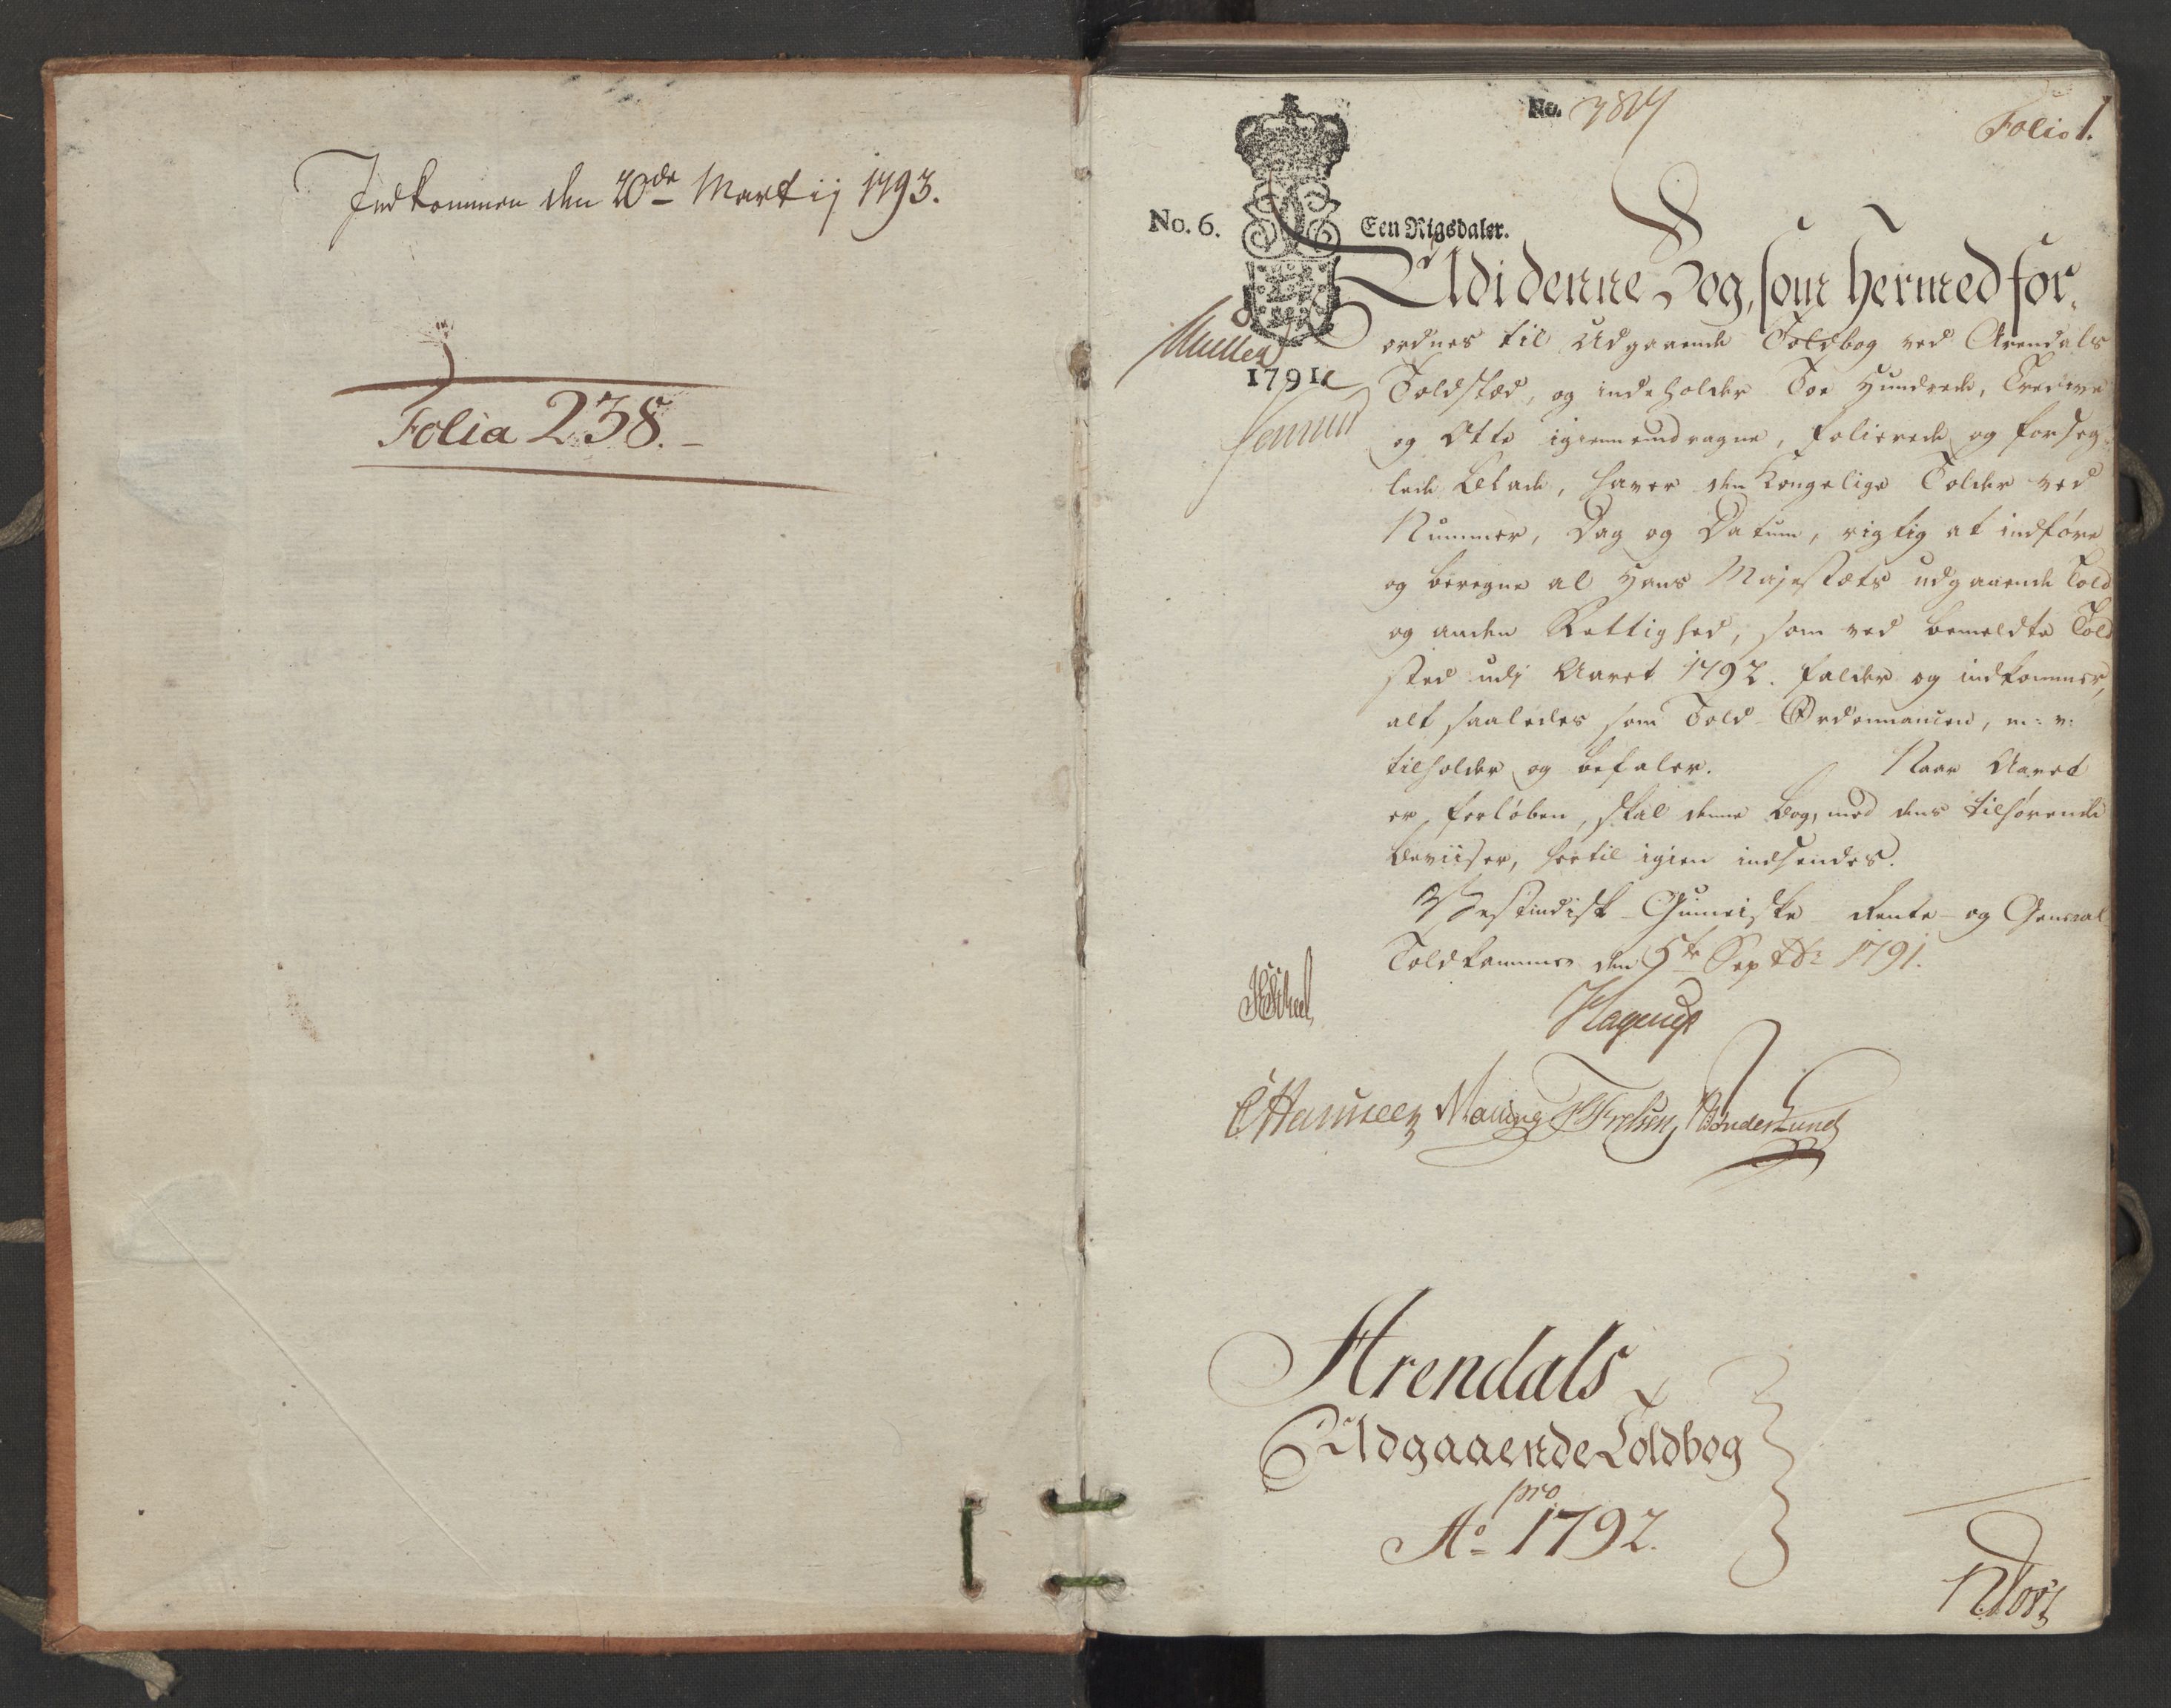 Indkommen den 20de Martij 1793.
Folia 238.
No.
Folio 1.
No. 6.
Een Rigsdaler.
1791
Udi denne Bog, som hermed for-
ordnes til Udgaaende Toldbog ved Arendals
Toldstæd, og indeholder Toe Hundrede, Tredeve
og Otte igiennemdragne, folierede og forseg-
lede Blade, haver den Kongelige Tolder ved
Nummer, Dag og Datum, rigtig at indføre
og beregne al Hans Majestæts udgaaende Told
og anden Rettighed, som ved bemeldte Told
sted udj Aaret 1792. falder og indkommer,
alt saaledes som Told-Ordonnancen, m: v:
tilholder og befaler. Naar Aaret
er forløben, skal denne Bog, med dens tilhørende
Beviiser, hertil igien indsendes.
Vestindisk-Guineiske Rente- og General
Toldkammer den 5te Septbr 1791.
Hagerup
Arendals
Udgaaende Toldbog
pro
Ao 1792.